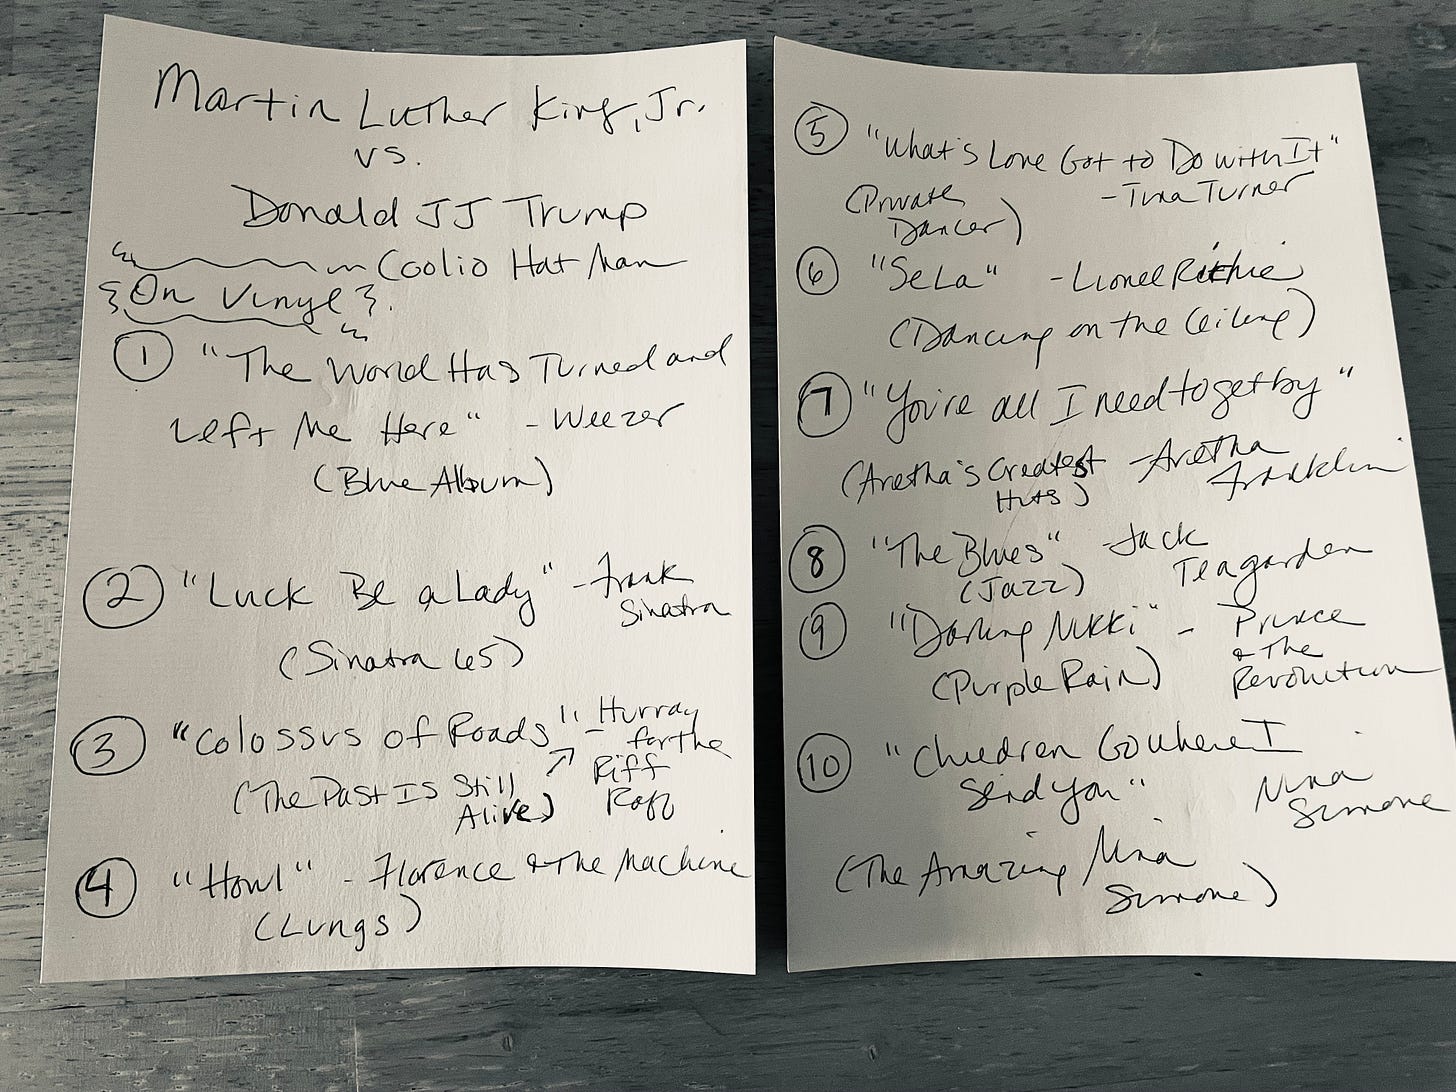 Martin Luther King, Jr.
vs.
Donald JJ Trump
Coolio Hat Man
On Vinyl
1 "The World Has Turned and
Left Me Here" - Weezer
(Blue Album)
2 "Luck Be a Lady" - Frank
Sinatra
(Sinatra 65)
3 "Colossus of Roads" - Hurray
for the
(The Past Is Still Riff
Alive) Raff
4 "Howl" - Florence & the Machine
(Lungs)
5 "What's Love Got to Do with It"
(Private - Tina Turner
Dancer)
6 "Se La" - Lionel Ritchie
(Dancing on the Ceiling)
7 "You're all I need to get by"
(Aretha's Greatest - Aretha
Hits) Franklin
8 "The Blues" - Jack
(Jazz) Teagarden
9 "Darling Nikki" - Prince
& The
(Purple Rain) Revolution
10 "Children Go Where I
Send You" Nina
Simone
(The Amazing Nina
Simone)